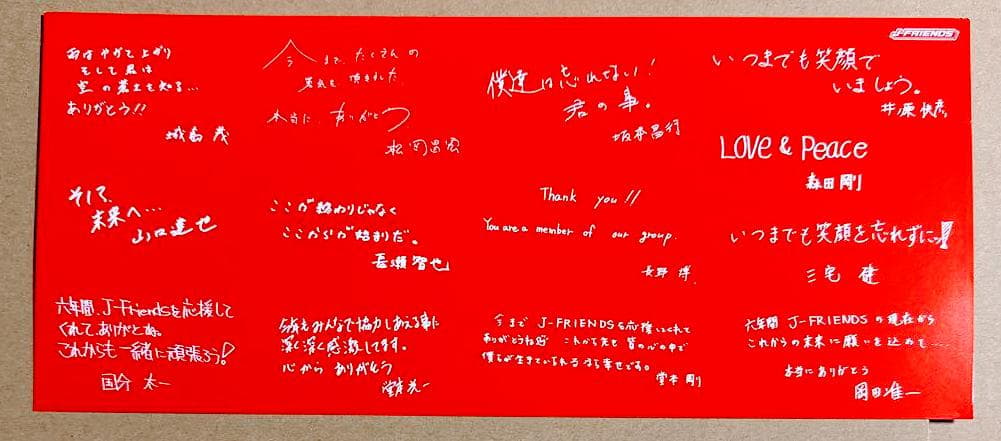 J-FRIENDS
雨はやがて上がり
そして君は
星の着土を知る…
ありがとう!!
城島 茂
今まで、たくさんの
勇気を頂きました
本当に、ありがとう
松岡昌宏
僕達は忘れてない!
君の事。
坂本昌行
いつまでも笑顔で
いましょう。
井ノ原快彦
LOVE & Peace
森田 剛
そして、
未来へ…
山口達也
ここが終わりじゃなく
ここからが始まりだ。
長瀬智也
Thank you!!
You are a member of our group.
長野 博
いつまでも笑顔を忘れずにっ!
三宅 健
六年間、J-Friendsを応援して
くれて、ありがとね。
これからも一緒に頑張ろう!
国分 太一
今後もみんなで協力しあえる事に
深く深く感激してます。
心から ありがとう
堂本光一
今まで J-FRIENDSを応援してくれて
ありがとうね
これから先も 皆の心の中で
僕らが生きていられるなら幸せです。
堂本 剛
六年間 J-FRIENDSの現在から
これからの未来に願いを込めて……
本当にありがとう
岡田准一